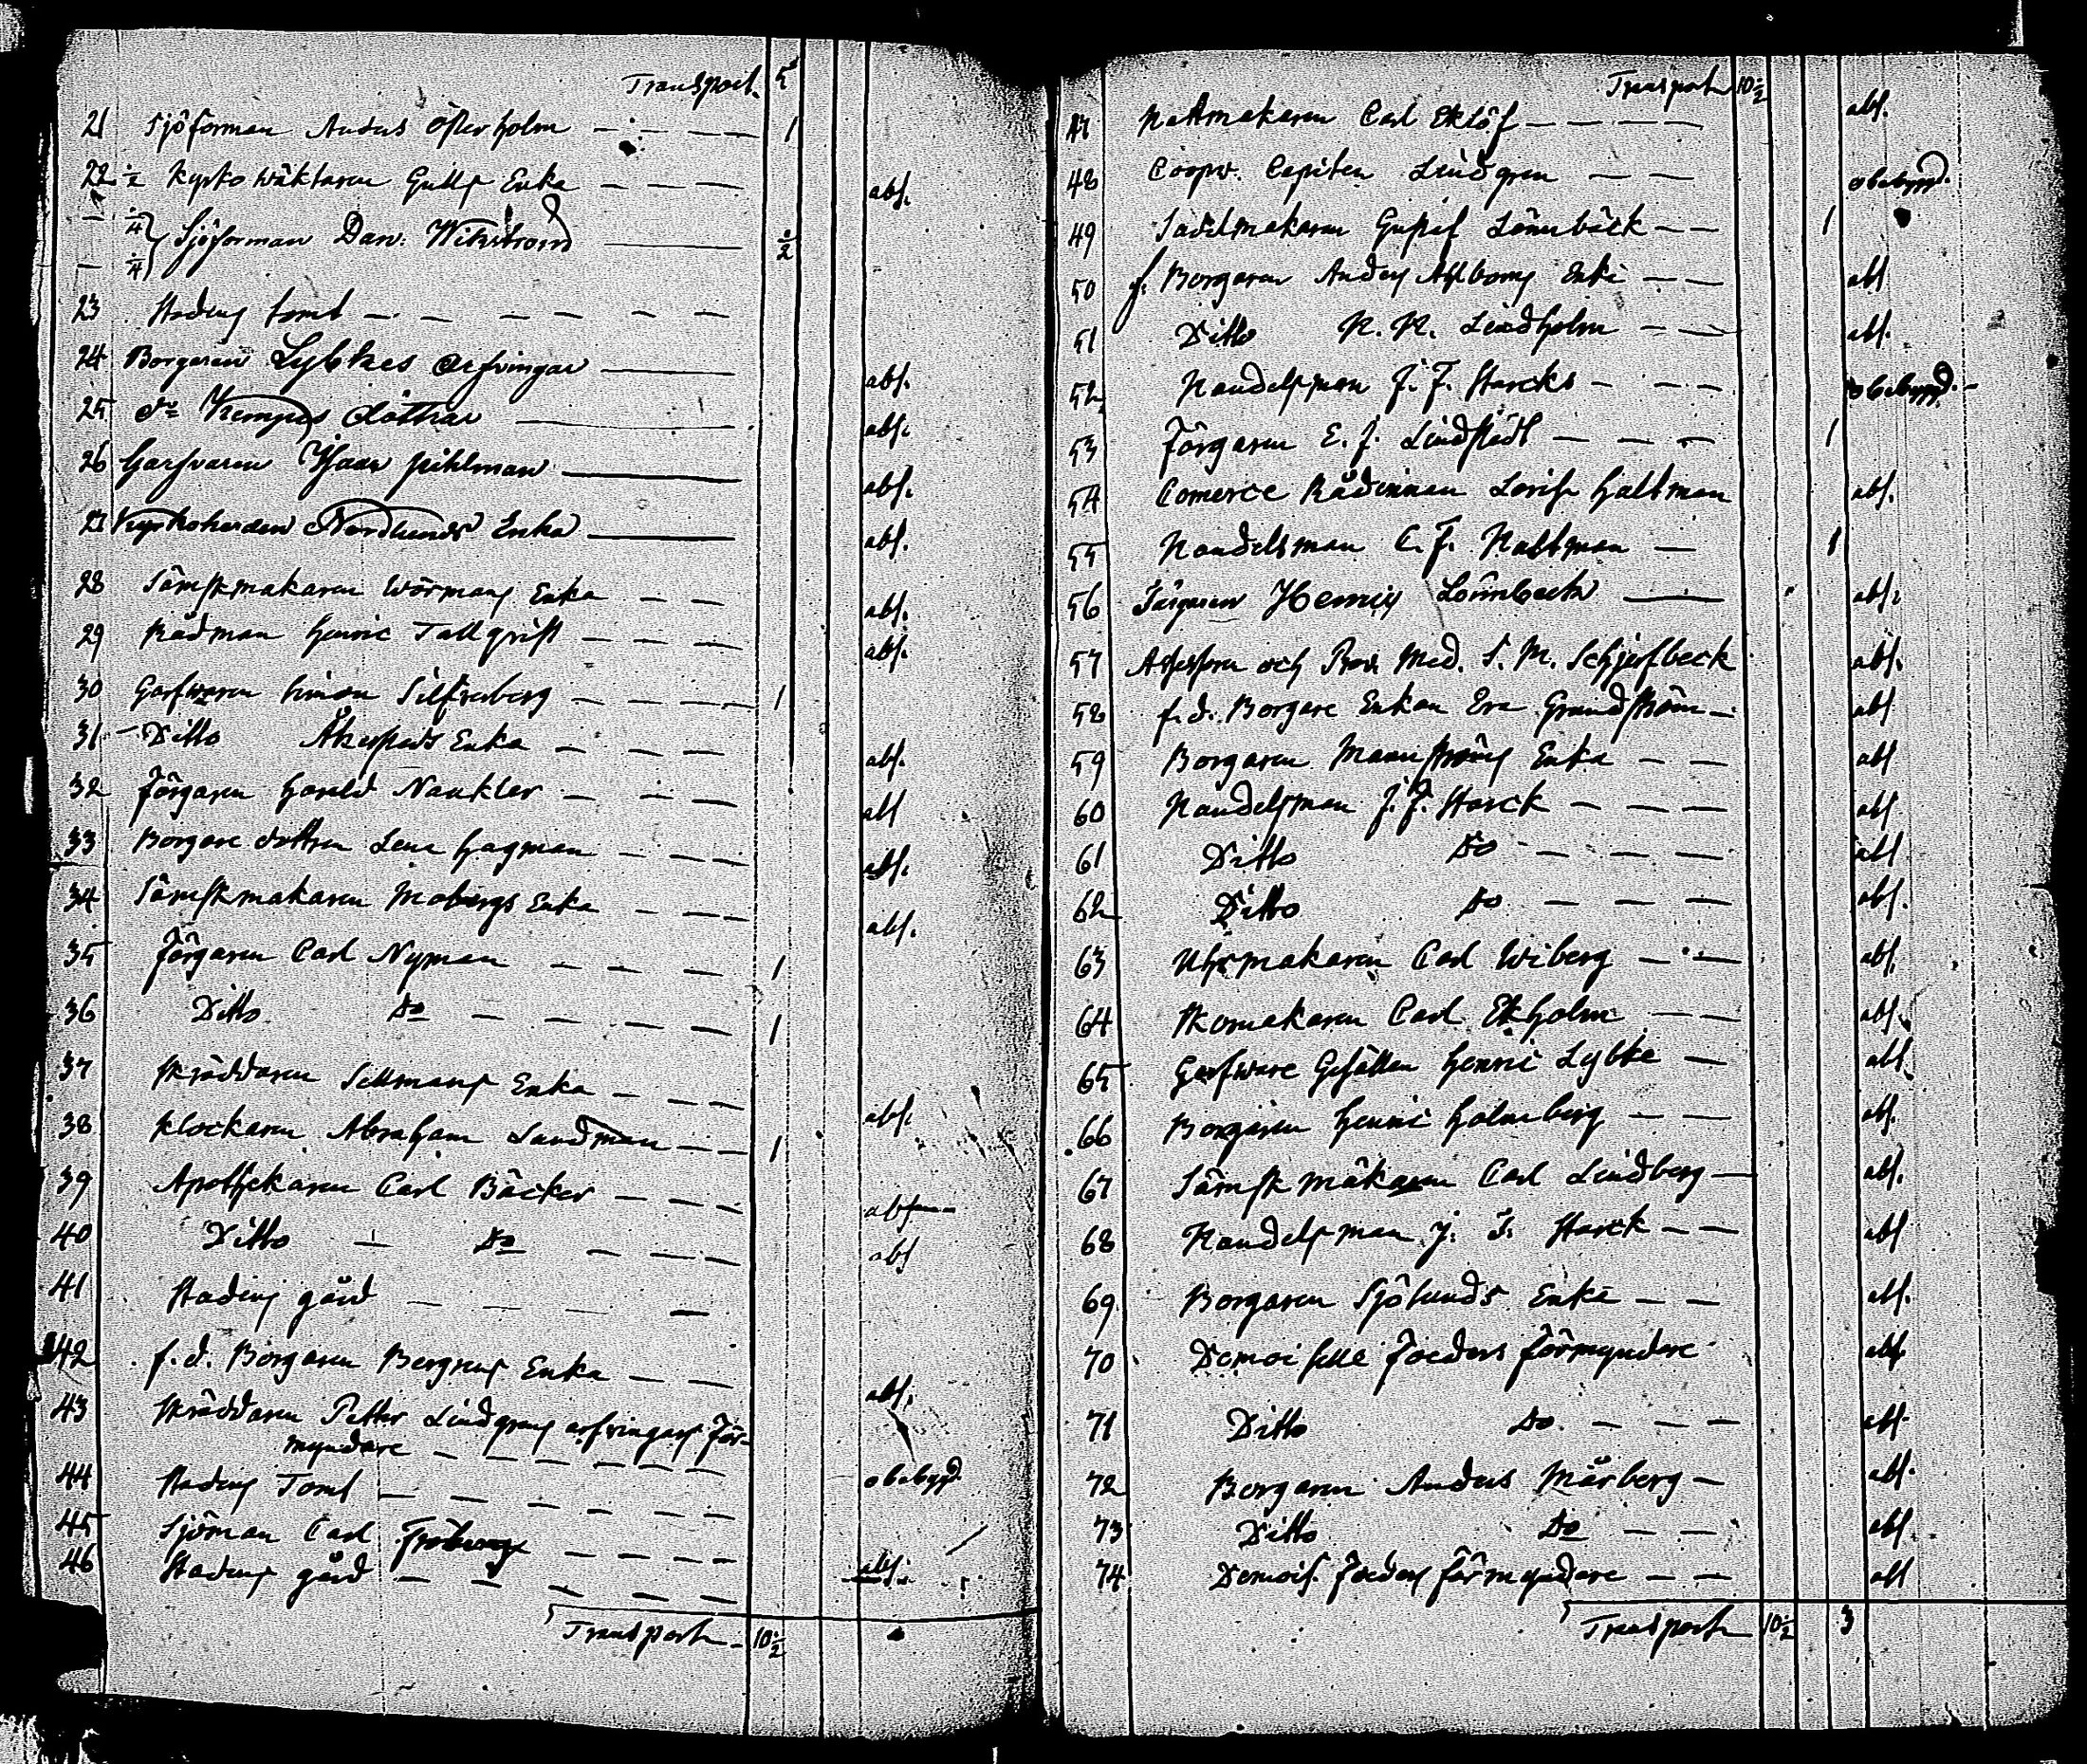 Transport. 5
21 Sjöforman Anders Österholm — — — — 1
22. ½ Kyrko wäktaren Gulls Enka — — — abs.
— ¼ } Sjöforman Dan: Wikström ½
— ¼
23 Stadens tomt — — — — — —
24 Borgaren Lybkes Arfvingar abs.
25 do Kempes döttrar abs.
26 Garfvaren Isaac Pihlman abs.
27 Kyrkoherden Nordlunds Enka abs.
28 Sämskmakaren Wörmans Enka — — abs.
29 Rådman Henric Tallqvist — — — abs.
30 Garfwaren Simon Silfverberg — — — — 1
31 Ditto Åkerfeds Enka — — — abs.
32 Färgaren Harald Naukler — — — abs
33 Borgare dottren Lena Hagman — — — abs.
34 Sämskmakaren Mobergs Enka — — — abs.
35 Färgaren Carl Nyman — — — — 1
36 Ditto Do — — — — — 1
37 Skräddaren Sellmans Enka — — — abs.
38 Klockaren Abraham Sandman — — 1
39 Apothekaren Carl Bäcker — — — abs
40 Ditto — Do — — — abs
41 Stadens gård — — — —
42 f.d. Borgaren Bergrens Enka — — — abs.
43 Skräddaren Petter Lindgrens arfvingars för-
myndare — — — — — —
44 Stadens Tomt — — — — — — obebygd.
45 Sjöman Carl Fröberg — — — —
46 Stadens gård — — — — — abs.
Transport — 10½
Transport 10½
47 Hattmakaren Carl Eklöf — — — — — abs.
48 Coopv. Capiten Lindgren — — obebygd.
49 Sadelmakaren Gustaf Lönnbäck — — 1
50 f. Borgaren Anders Ahlboms Enka — — abs
51 Ditto N. N. Lindholm — — abs.
52 Handelsman J. F. Starcks — — — obebygd. —
53 Färgaren E. J. Lindstedt — — — 1
54 Comerce Rådinnan Lovisa Haltman abs.
55 Handelsman C. F. Haltman — 1
56 Färgaren Henric Lönnbeck abs.
57 Assessoren och Prov. Med. S. M. Schjerfbeck abs.
58 f.d. Borgare Enkan Eva Grundström — abs
59 Borgaren Mannströms Enka — — abs
60 Handelsman J. F. Starck — — — abs
61 Ditto Do — — — abs
62 Ditto Do — — — abs.
63 Uhrmakaren Carl Wiberg — — — abs.
64 Skomakaren Carl Ekholm — — abs.
65 Garfvare Gesällen Henric Lybke — abs.
66 Borgaren Henric Holmberg — — abs.
67 Sämsk makaren Carl Lindberg — abs.
68 Handelsman J. F. Starck — — abs
69 Borgaren Sjölunds Enka — — abs.
70 Demoiselle Foeders förmyndare abs
71 Ditto Do — — — abs.
72 Borgaren Anders Mårberg — abs.
73 Ditto Do — — abs.
74 Demois. Foeders förmyndare — — abs
Transport 10½ 3